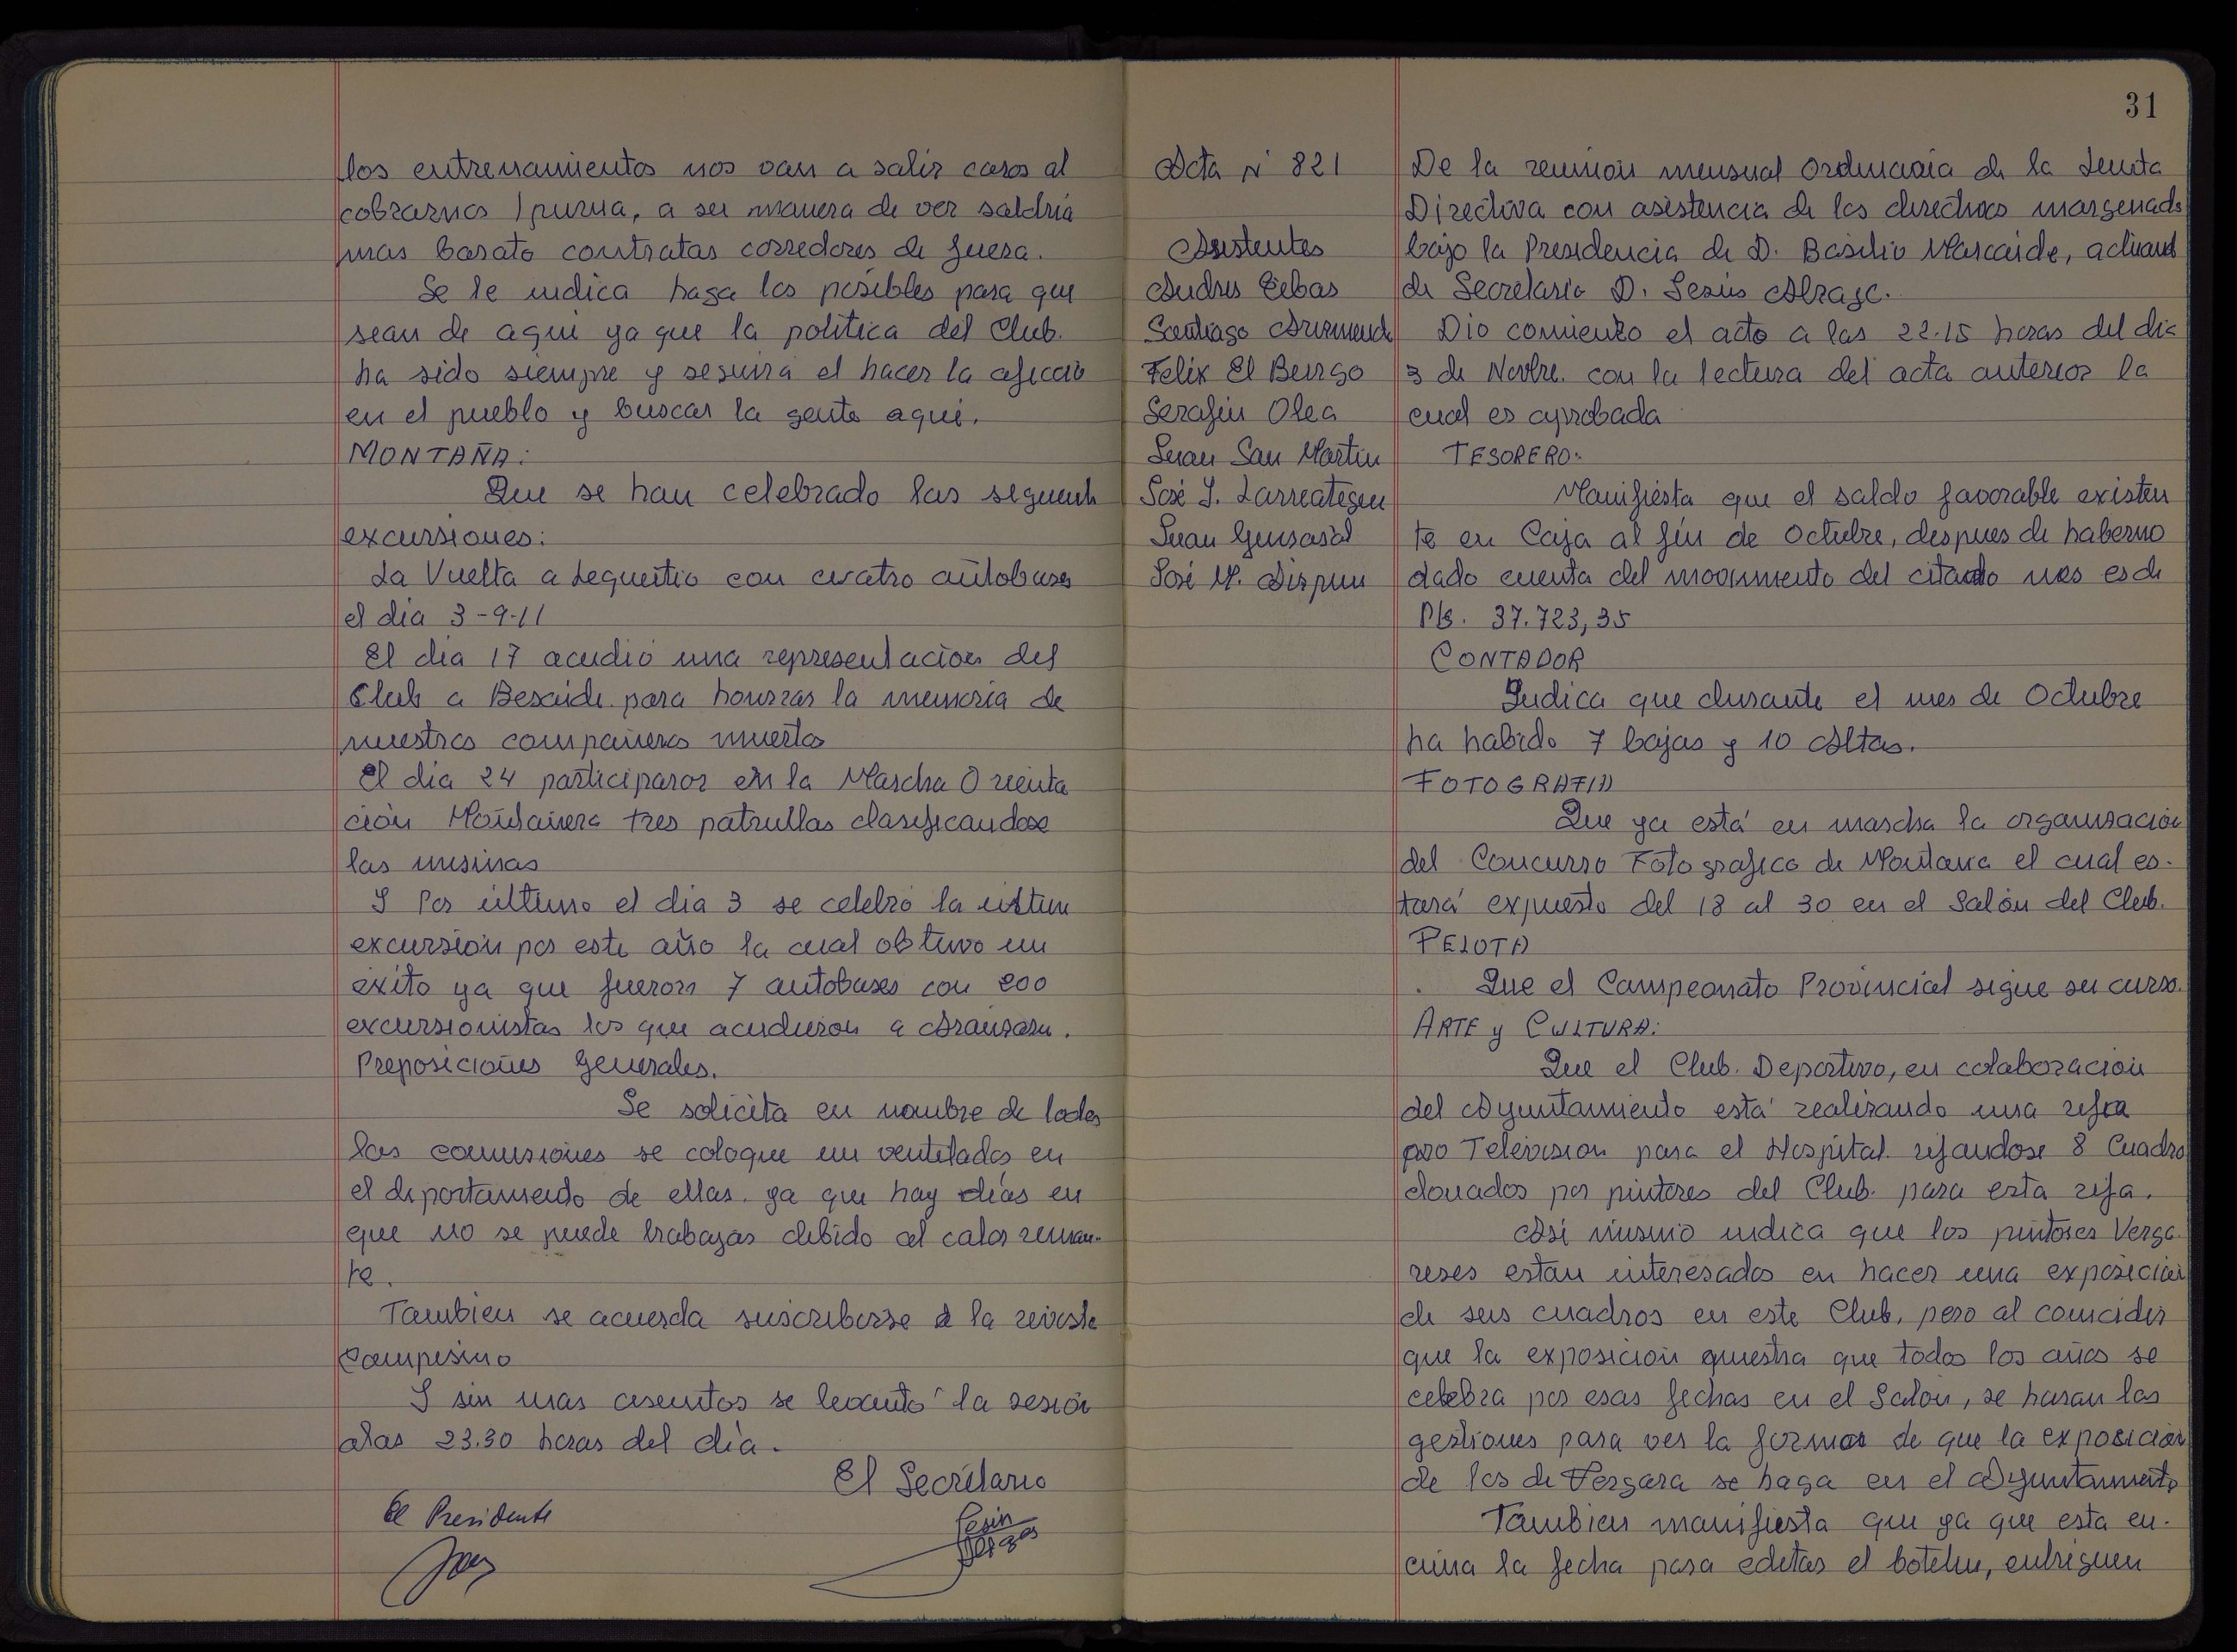 los entrenamientos nos van a salir caros al
cobrarnos Ipurua, a su manera de ver saldria
mas barato contratar corredores de fuera.
Se le indica haga los posibles para que
sean de aqui ya que la politica del Club.
ha sido siempre y seguira el hacer la afición
en el pueblo y buscar la gente aqui.
MONTAÑA:
Que se han celebrado las siguient
excursiones:
La Vuelta a Lequeitio con cuatro autobuses
el dia 3-9-11
El dia 17 acudió una representacion del
Club a Besaide para honrrar la memoria de
nuestros compañeros muertos
El dia 24 participaron en la Marcha Orienta
ción Montañera tres patrullas clasificandose
las mismas
Y Por ultimo el dia 3 se celebró la ultim
excursión por este año la cual obtuvo un
éxito ya que fueron 7 autobuses con 200
excursionistas los que acudieron a Aranzazu.
Preposiciones Generales.
Se solicita en nombre de todas
las comisiones se coloque un ventilador en
el departamento de ellas. ya que hay días en
que no se puede trabajar debido al calor reinan-
te.
Tambien se acuerda suscribirse a la revista
Campesino
Y sin mas asuntos se levantó la sesión
alas 23.30 horas del día.
El Secretario
El Presidente
31
Acta N 821
Asistentes
Andres Eibar
Santiago Arizmendi
Felix El Burgo
Serafin Olea
Juan San Martin
Jose Y. Larreategui
Juan Gensasal
José M. Aizpun
De la reunión mensual ordinaria de la Junta
Directiva con asistencia de los directivos margenados
bajo la Presidencia de D. Basilio Mascaide, actuand
de Secretario D. Jesús
Dio comienzo el acto a las 22.15 horas del dia
3 de Novbre. con la lectura del acta anterior la
cual es aprobada
TESORERO.
Manifiesta que el saldo favorable existen
te en Caja al fin de Octubre, despues de haberno
dado cuenta del movimiento del citado mes es de
Pts. 37.723,35
CONTADOR
Indica que durante el mes de Octubre
ha habido 7 bajas y 10 Altas.
FOTOGRAFIA
Que ya está en marcha la organización
del Concurso Fotografico de Montaña el cual es-
tará expuesto del 18 al 30 en el Salón del Club.
PELOTA
Que el Campeonato Provincial sigue su curso.
ARTE y CULTURA:
Que el Club. Deportivo, en colaboración
del Ayuntamiento está realizando una rifa
pro Television para el Hospital. rifandose 8 Cuadro
donados por pintores del Club. para esta rifa.
Asi mismo indica que los pintores Verga-
reses estan interesados en hacer una exposicion
de sus cuadros en este Club, pero al coincidir
que la exposicion nuestra que todos los años se
celebra por esas fechas en el Salon, se haran las
gestiones para ver la forma de que la exposicion
de los de Vergara se haga en el Ayuntamiento
Tambien manifiesta que ya que esta en-
cima la fecha para editar el boletin, entreguen